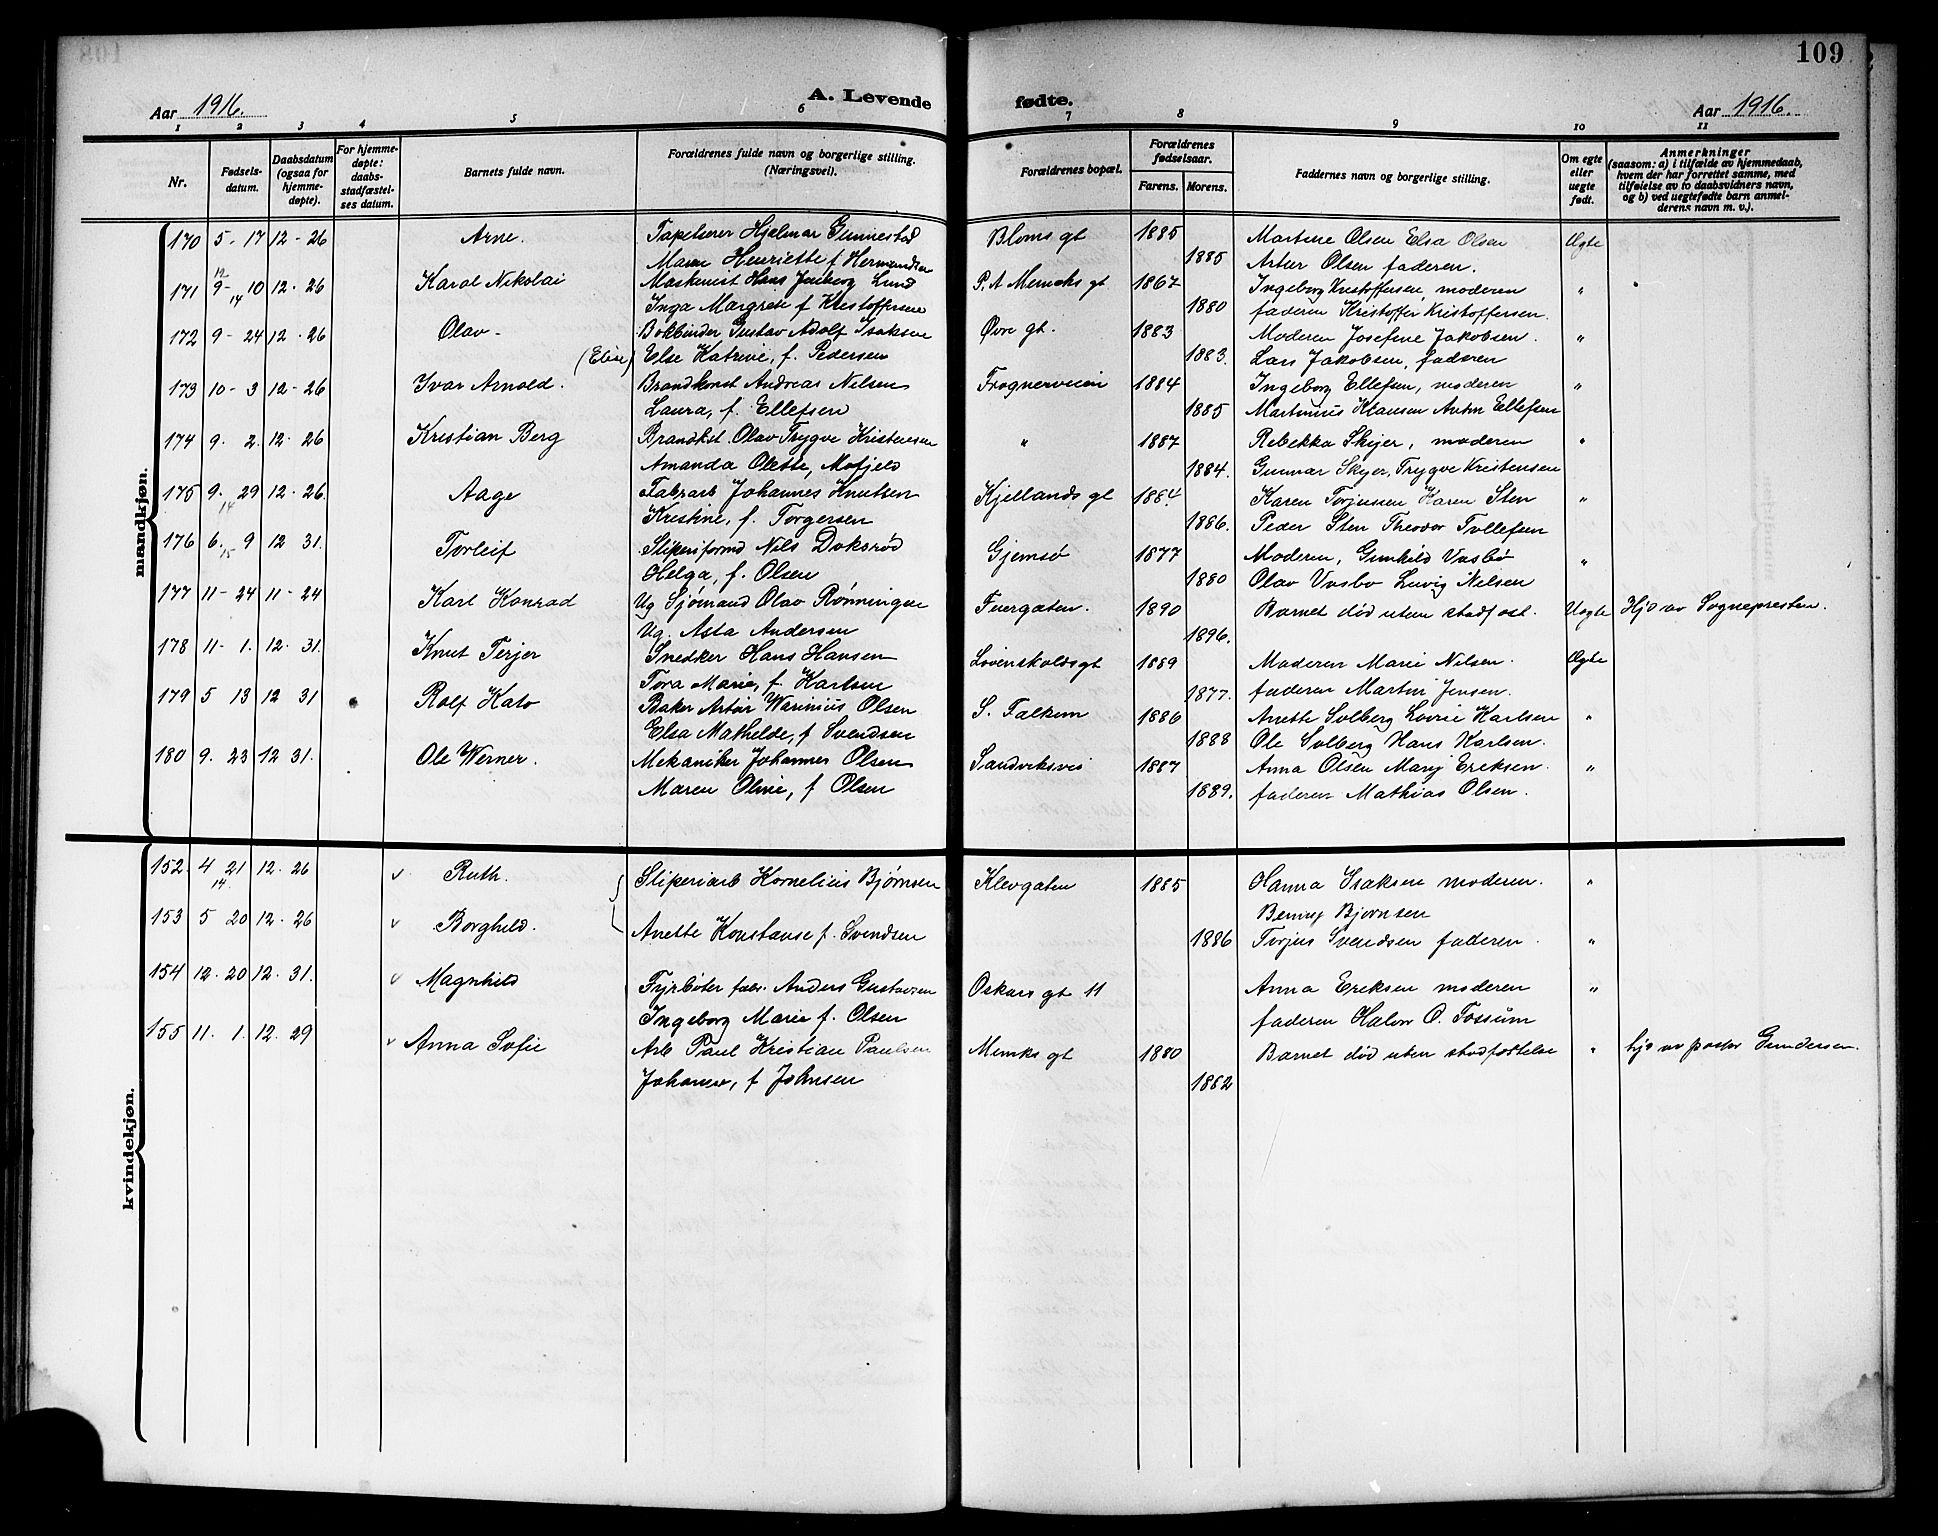 109
Aar 1916. A. Levende fødte. Aar 1916.
1 2 3 4 5 6 7 8 9 10 11
Nr. Fødsels-datum. Daabsdatum (ogsaa for hjemme-døpte). For hjemme-døpte: daabs-stadfæstel-ses datum. Barnets fulde navn. Forældrenes fulde navn og borgerlige stilling. (Næringsvei). Forældrenes bopæl. Forældrenes fødselsaar. Farens. Morens. Faddernes navn og borgerlige stilling. Om egte eller uegte født. Anmerkninger (saasom: a) i tilfælde av hjemmedaab, hvem der har forrettet samme, med tilføielse av to daabsvidners navn, og b) ved uegtefødte barn anmel-derens navn m. v.).
mandkjøn.
170 5 - 17 12 - 26 Arne. Tapetserer Hjelmar Gunnestad Bloms gt 1885 Martine Olsen Elsa Olsen Ægte
Maren Henriette f Hermandsen 1885 Artur Olsen faderen.
171 9 - 10 12. 26 Karol Nikolai Maskinist Hans Lund P. A Menchs gt 1867 Ingeborg Kristoffersen, moderen "
12 14
Inga Margrete f Kristoffersen 1880 faderen Kristoffer Kristoffersen.
172 9 - 24 12 . 26 Olav - Bokbinder Gustav Adolf Isaksen Øvre gt. 1883 Moderen Josefine Jakobsen. "
(Elise) Else Katrine, f. Pedersen 1883. Lars Jakobsen, faderen
173 10 - 3 12 - 26 Ivar Arnold. Brandkonst Andreas Nilsen Frognerveien 1884 Ingeborg Ellefsen, moderen "
Laura, f. Ellefsen 1885 Martinius Klausen Anton Ellefsen
174 9. 2. 12. 26 Kristian Berg Brandkst. Olav Trygve Kristensen " 1887 Rebekka Skjer, moderen "
Amanda Olette, Mofjeld 1884. Gunnar Skjer, Trygve Kristensen
175 9. 29 12 - 26. Aage Fabrarb Johannes Knutsen Kjellands gt 1884. Karen Torjussen Karen Sten "
14
Kristine, f. Torgersen 1886. Peder Sten Theodor Tollefsen
176 6. 9 12 31. Torleif Sliperiformd Nils Doksrød Gjemsø 1877 Moderen, Gunhild Vasbø "
15
Helga, f. Olsen 1880 Olav Vasbo Luvig Nilsen
177 11 - 24 11 - 24 Karl Konrad Ug Sjømand Olav Rønningen Fuergaten. 1890 Barnet død uten stadfæst. Uegte Hjd av Sognepresten.
Ug. Asta Andersen 1896.
178 11 - 1. 12. 31. Knut Terjer Snedker Hans Hansen Løvenskoldsgt 1889 Moderen Marie Nilsen. Ægte
Tora Marie, f. Karlsen 1877. faderen Martin Jensen.
179 5 13 12 31 Rolf Kato Baker Artur Olsen S. Falkum 1886 Anette Solberg Lovise Karlsen "
Elsa Mathilde, f Svendsen 1888 Ole Solberg Hans Karlsen.
180 9. 23 12 31. Ole Werner. Mekaniker Johannes Olsen Sandviksvei 1887 Anna Olsen Marij Eriksen. "
Maren Oline, f Olsen 1889. faderen Mathias Olsen.
kvindekjøn.
152. 4 21 12. 26 v Ruth. Sliperiarb Kornelius Bjørnsen Klevgaten 1885 Hanna Isaksen moderen. "
14.
Bernt Bjørnsen
153 5 20 12. 26 v Borghild. Anette Konstanse f. Svendsen 1886 Torjus Svendsen faderen. "
154 12. 20 12. 31. v Magnhild Fyrbøter fabr. Anders Gustavsen Oskars gt 11 Anna Eriksen moderen "
Ingeborg Marie f. Olsen faderen Halvor O. Fossum
155 11. 1. 12. 29 v Anna Sofie Arb Paul Kristian Paulsen Menks gt 1880 Barnet død uten stadfæstelse " hjd av pastor Gundersen.
Johanne, f Johnsen 1882